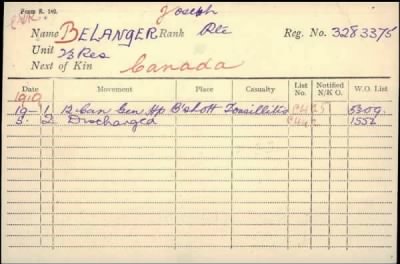 Form R. 140.
Joseph
Name BELANGER Rank Pte Reg. No. 3283375
Unit 23 Res
Next of Kin Canada
Date Movement Place Casualty List No. Notified N/K O. W.O. List
1919
19- 1 12 Can Gen Hp B'shott Tonsillitis 5309.
5. 2 Discharged 1552